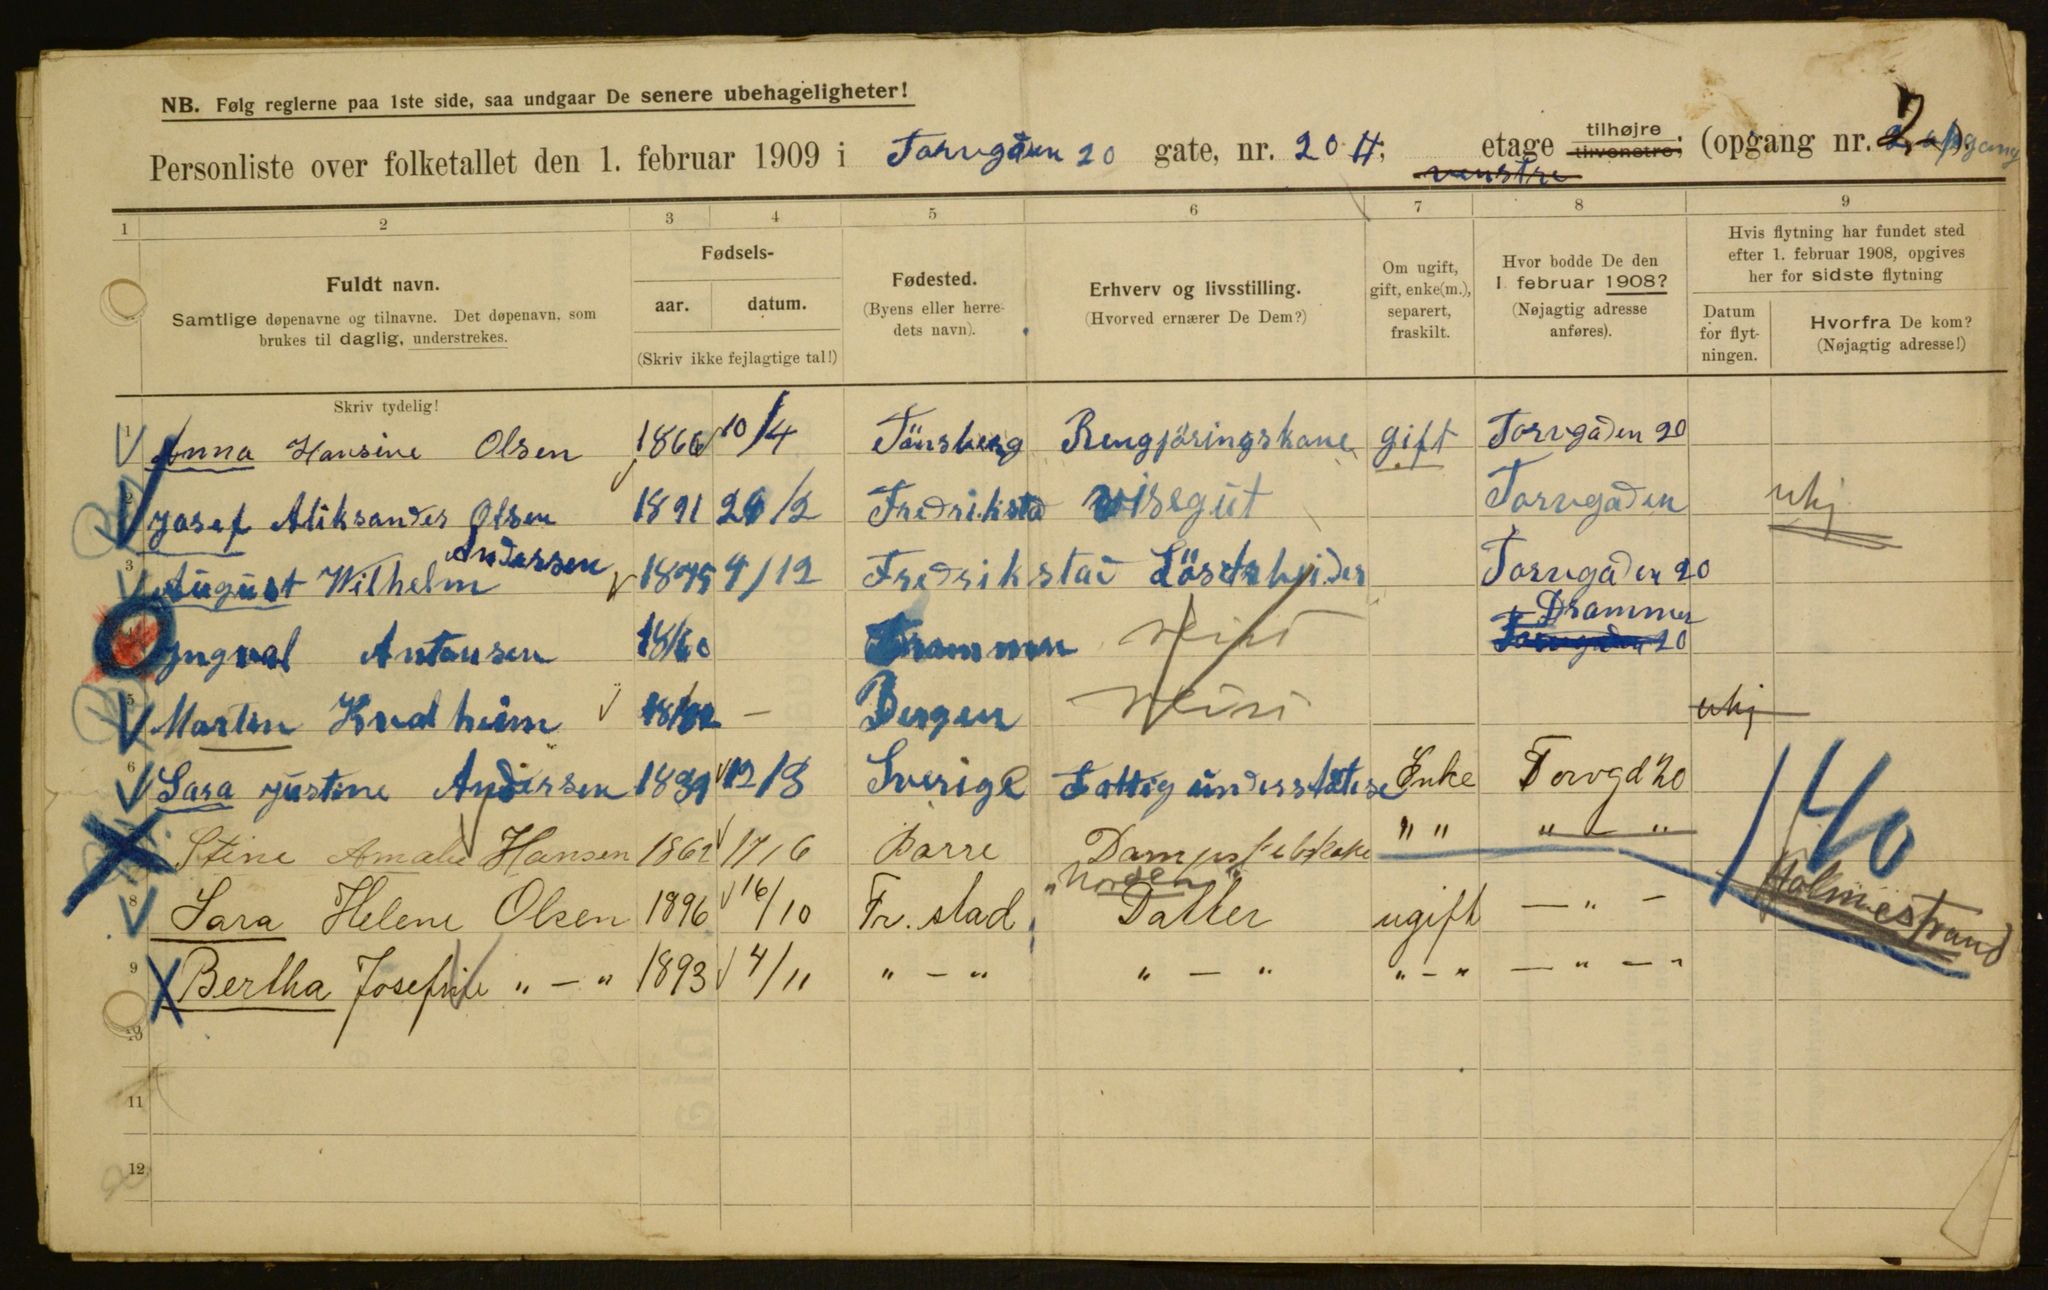 NB. Følg reglerne paa 1ste side, saa undgaar De senere ubehageligheter!
Personliste over folketallet den 1. februar 1909 i Torvgaden 20 gate, nr. 20 H; etage tilhøjre tilvenstre; (opgang nr. 2 opgang).
venstre
1 2 3 4 5 6 7 8 9
Fuldt navn.
Samtlige døpenavne og tilnavne. Det døpenavn, som
brukes til daglig, understrekes.
Fødsels-
aar. datum.
(Skriv ikke fejlagtige tal!)
Fødested.
(Byens eller herre-
dets navn).
Erhverv og livsstilling.
(Hvorved ernærer De Dem?)
Om ugift,
gift, enke(m.),
separert,
fraskilt.
Hvor bodde De den
1. februar 1908?
(Nøjagtig adresse
anføres).
Hvis flytning har fundet sted
efter 1. februar 1908, opgives
her for sidste flytning
Datum
for flyt-
ningen.
Hvorfra De kom?
(Nøjagtig adresse!)
Skriv tydelig!
1 Anna Hansine Olsen 1866 10/4 Tönsberg Rengjöringskone gift Torvgaden 20
2 Josef Aliksander Olsen 1891 20/2 Fredrikstad visegut Torvgaden uhj
Andersen
3 August Wilhelm 1875 4/12 Fredrikstad Lösarbeider Torvgaden 20
Drammen
Yngval Antonsen 1860 Drammen Reist Torvgaden 20
5 Martin Kvalheim 18 — Bergen Reist uhj
6 Sara Justine Andersen 1839 12/8 Sverige Fattigunderstötelse Enke Torvgd 20
140
Stine Amalie Hansen 1862 17/6 Borre " " " — "
"Norden" Holmestrand
8 Sara Helene Olsen 1896 16/10 Fr.stad Datter ugift — " —
9 Bertha Josefine " — " 1893 4/11 " — " " — " " — " — " — "
10
11
12